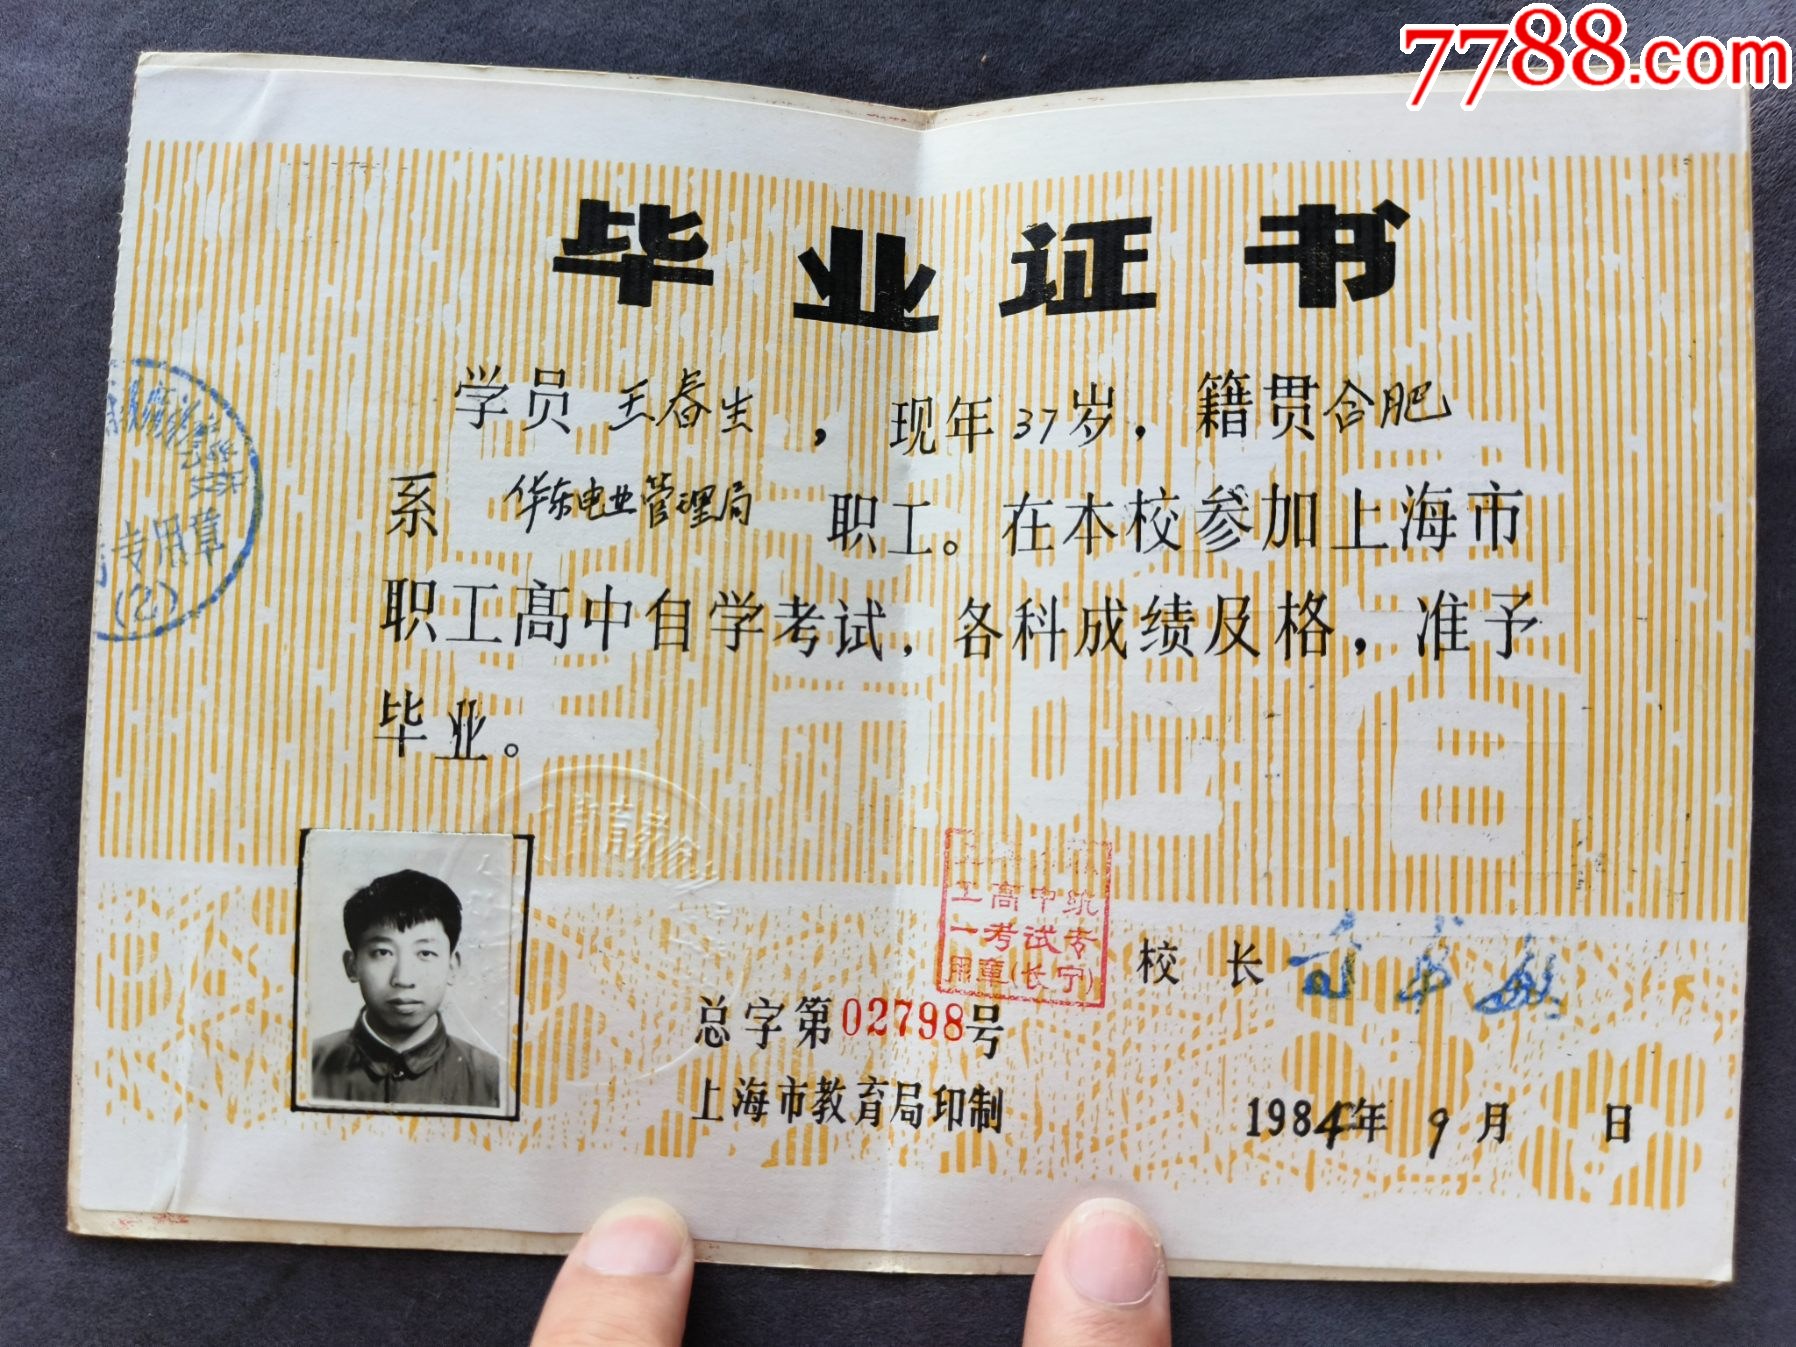 7788.com
毕业证书
学员 王春生，现年37岁，籍贯合肥
系 华东电业管理局 职工。在本校参加上海市
职工高中自学考试，各科成绩及格，准予
毕业。
专用章
(2)
工高中统
一考试专
用章(长宁)
校长
总字第02798号
上海市教育局印制
1984年9月 日